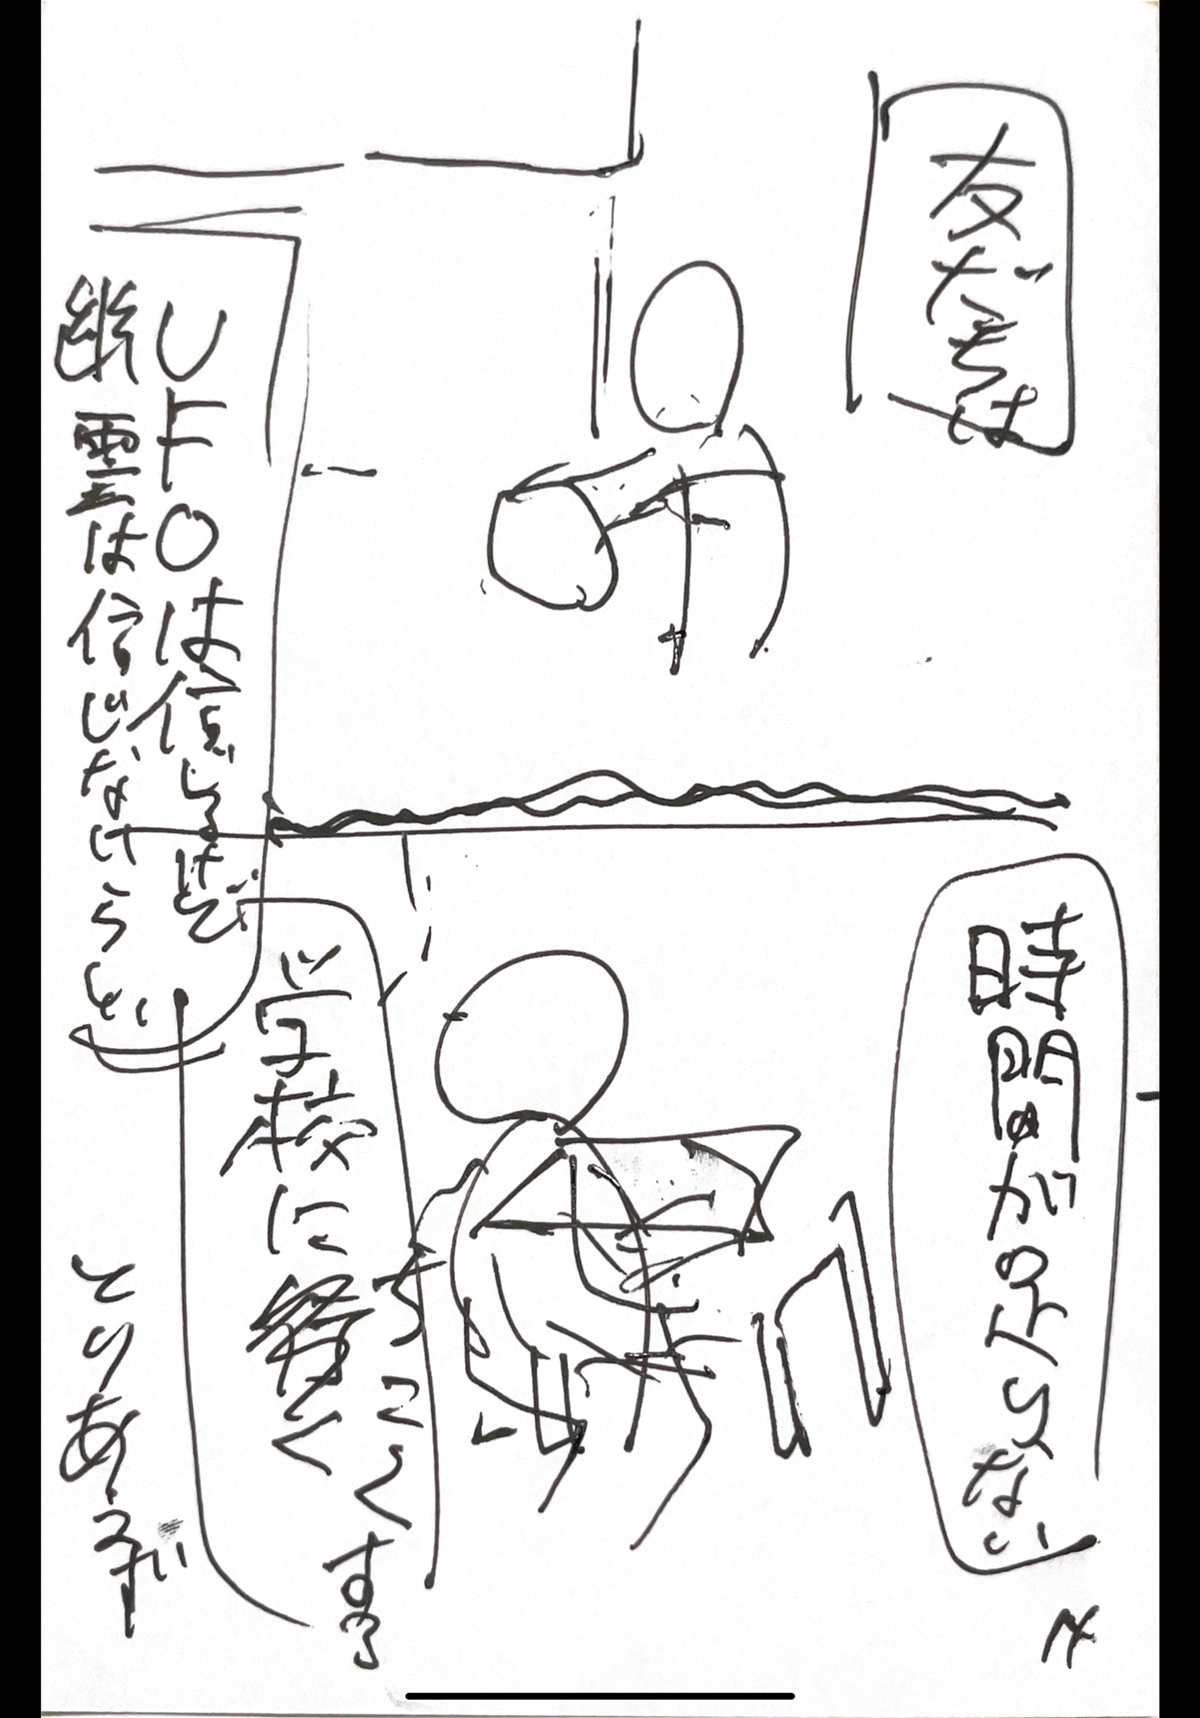 友だちは
UFOは信じるけど
幽霊は信じないらしい
時間が足りない
ちこくする
学校に着く
とりあえず